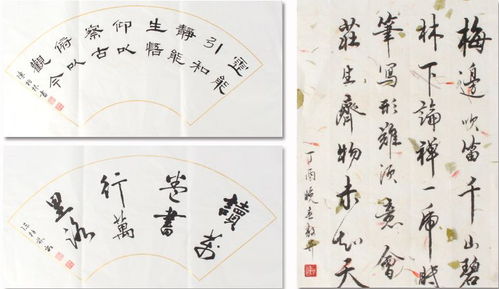 靈能
引和
靜能
生悟
仰以
察古
俯以
觀今
讀萬
卷書
行萬
里路
梅邊吹笛千山碧
林下論禪一時
筆寫形難須意會
莊生齊物未知天
丁酉晚春